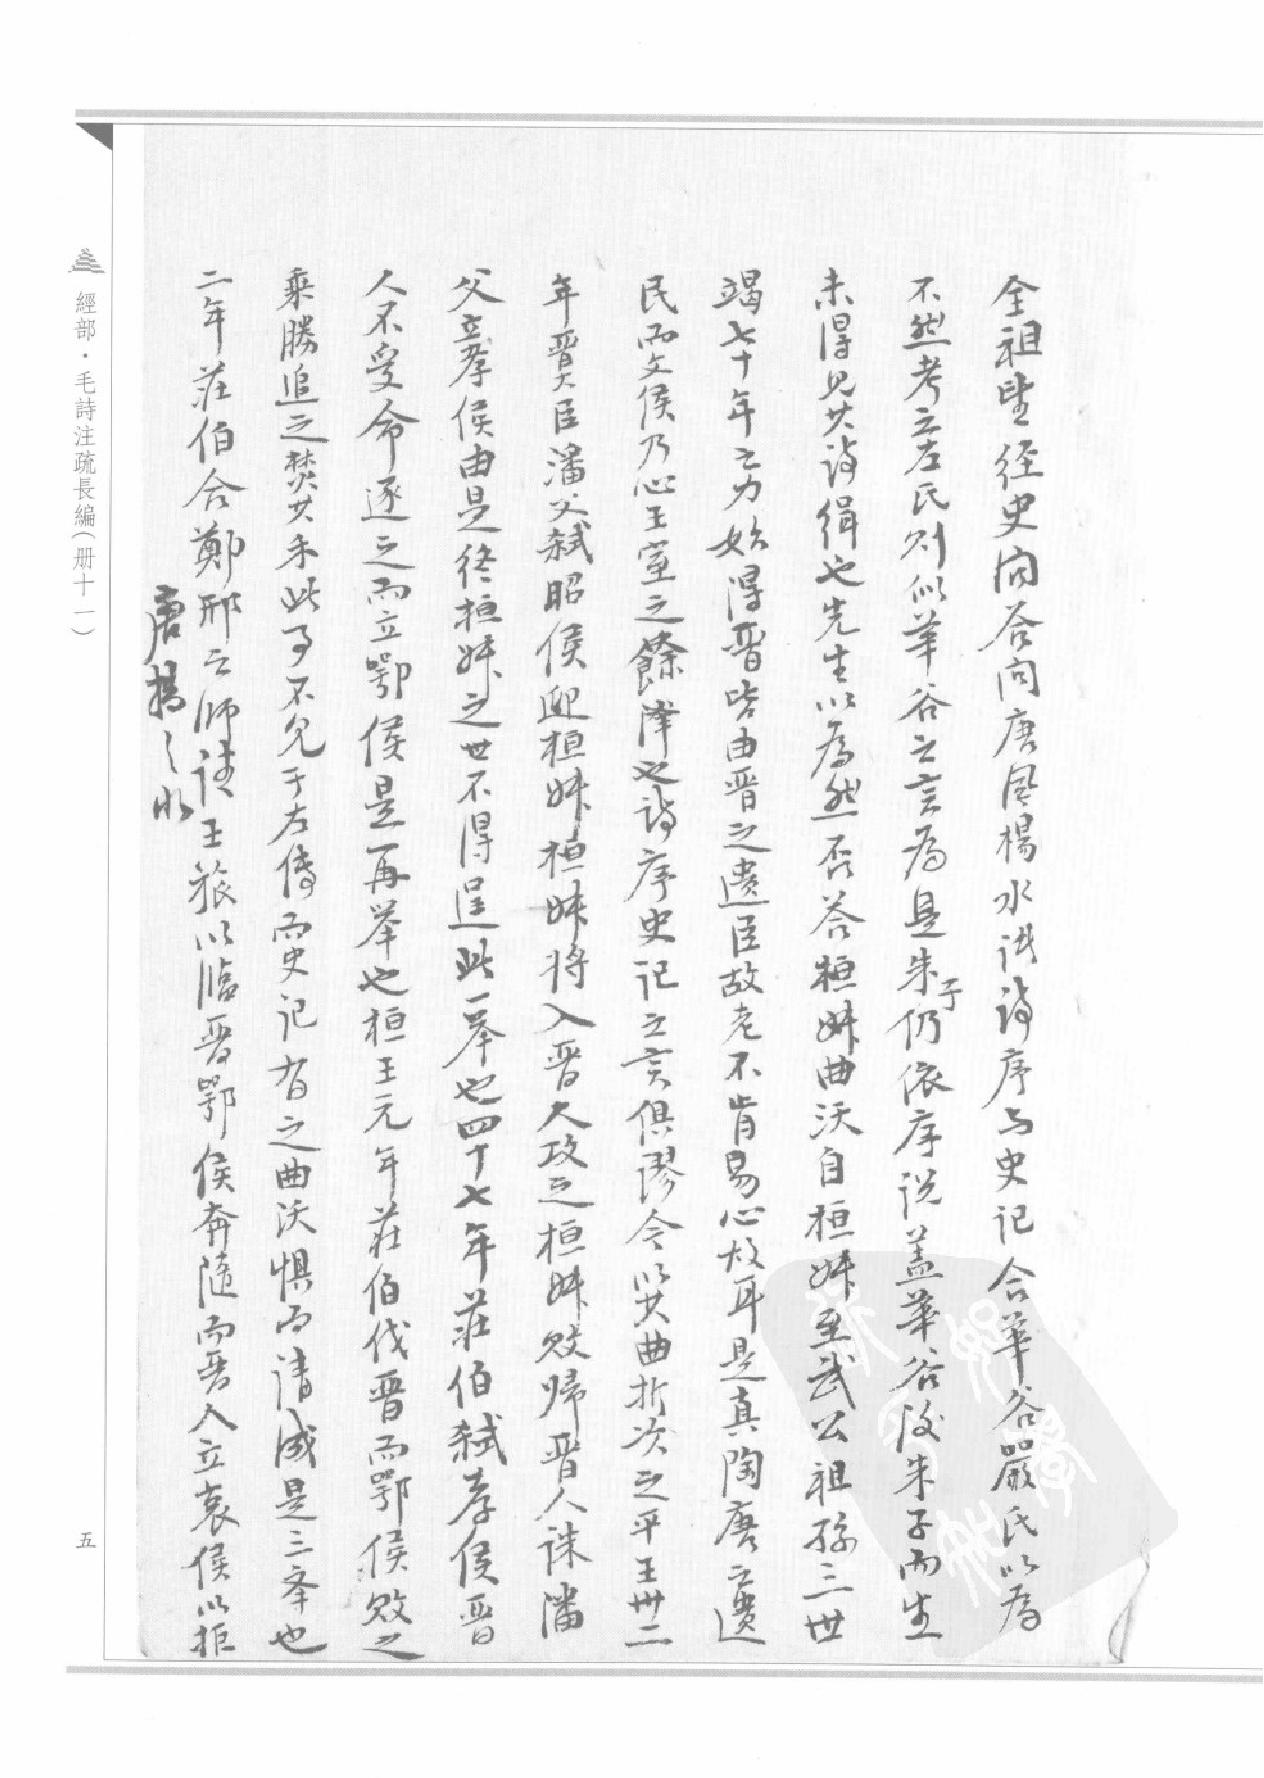 全祖望经史问答问唐风楊水诋詩序与史记合華谷嚴氏以為
不然考之左氏则似華谷之言為是朱子仍依序说盖華谷後朱子而生
未得見其詩缉也先生以為然否答桓叔曲沃自桓叔至武公祖孫三世
竭七十年之力始得晋皆由晋之遺臣故老不肯易心故耳是真陶唐之遺
民而文侯乃心王室之餘澤也詩序史记之言俱謬今以其曲折次之平王卅二
年晋大臣潘父弑昭侯迎桓叔桓叔将入晋大攻之桓叔败归晋人誅潘
父立孝侯由是终桓叔之世不得逞此一举也四十七年莊伯弑孝侯晋
人不受命逐之而立鄂侯是再举也桓王元年莊伯伐晋而鄂侯败之
乘勝追之焚其禾此事不見于左傳而史记有之曲沃懼而请成是三举也
二年莊伯合鄭邢之师请王旅以臨晋鄂侯奔隨而晋人立哀侯以拒
唐揚之水
經部·毛詩注疏長編（册十一）
五